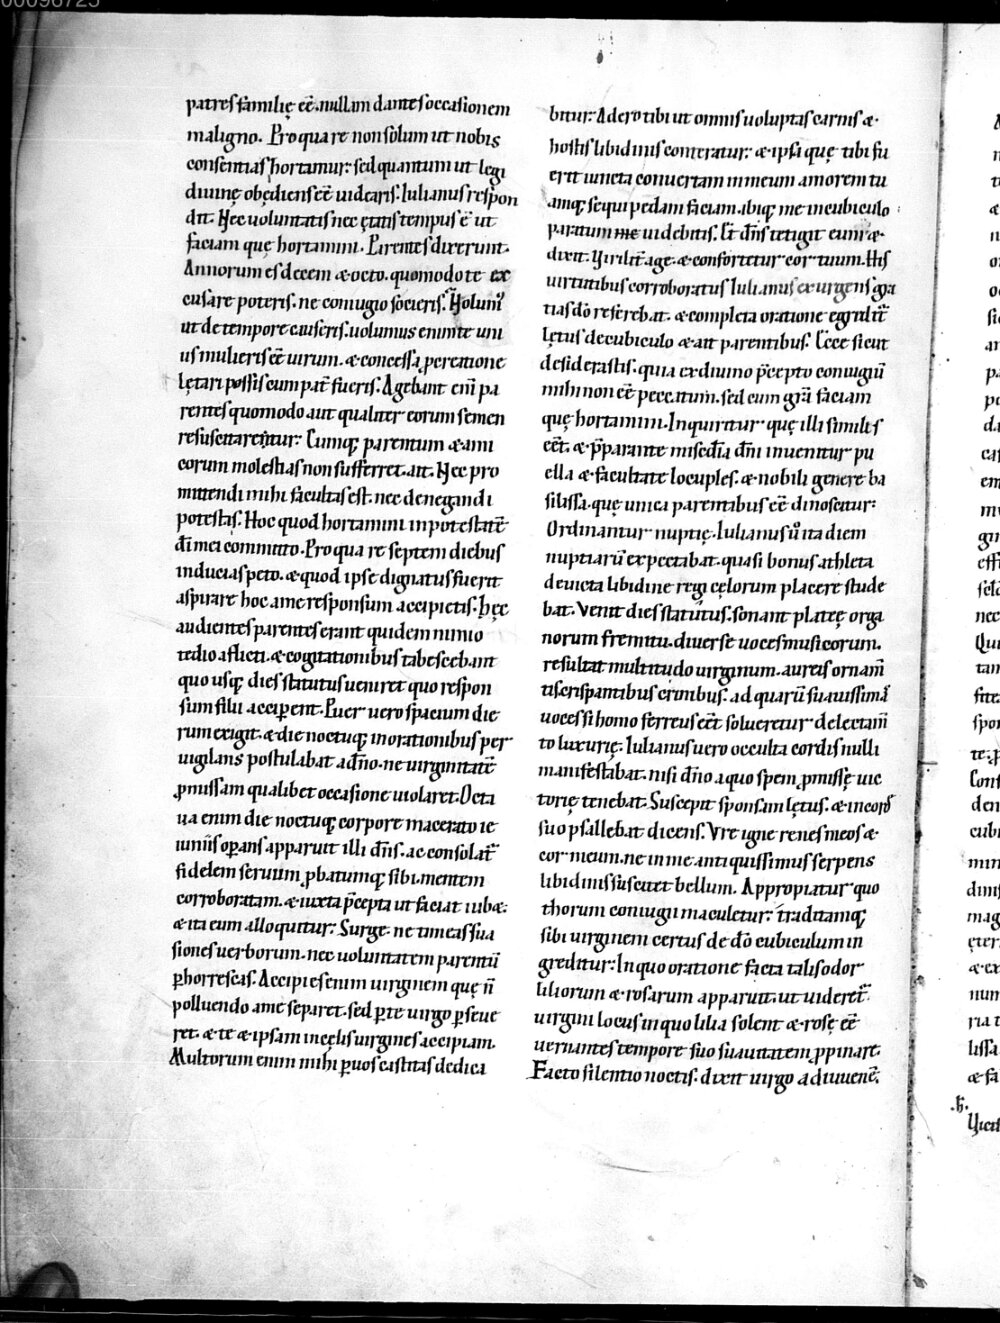 00096725
patres familię eē. nullam dantes occasionem
maligno. Pro qua re non solum ut nobis
consentias hortamur: sed quantum ut legi
diuinę obędiens eē uidearis. Iulianus respon
dit. Nec uoluntatis nec ętatis tempus ē ut
faciam quę hortamini. Parentes dixerunt.
Annorum es decem & octo. quomodo te ex
cusare poteris. ne coniugio socieris. Nolumus
ut de tempore causeris. uolumus enim te uni
us mulieris eē uirum. & concessa ꝓcreatione
lętari possis cum pat̄ fueris. Agebant eni pa
rentes quomodo aut qualiter eorum semen
resuscitaretur: Cumq; parentum & ami
corum molestias non sufferret. ait. Nec pro
mittendi mihi facultas est. nec denegandi
potestas. Hoc quod hortamini in potestatē
dī mei committo. Pro qua re septem diebus
inducias peto. & quod ipse dignatus fuerit
aspirare hoc a me responsum accipietis. hęc
audientes parentes erant quidem nimio
tedio aflicti. & cogitationibus tabescebant
quo usq; dies statutus ueniret quo respon
sum filii accip̄ent. Puer uero spacium die
rum exigit. & die noctuq; in orationibus per
uigilans postulabat a dn̄o. ne uirginitatē
ꝓmissam qualibet occasione uiolaret. Octa
ua enim die noctuq; corpore macerato ie
iuniis oꝑans apparuit illi dn̄s. ac consolat̄
fidelem seruum ꝓbatumq; sibi. mentem
corroboratam. & iuxta p̄cepta ut faciat iubet.
& ita eum alloquitur: Surge. ne timeas sua
siones uerborum. nec uoluntatem parentū
ꝑhorrescas. Accipies enim uirginem quę n̄
polluendo a me separet. sed ꝑ te uirgo ꝑseue
ret. & te & ipsam in cęlis uirgines accipiam.
Multorum enim mihi ꝑ uos castitas dedica
bitur: Adero tibi ut omnis uoluptas carnis &
hostis libidinis conteratur: & ipsa quę tibi fu
erit iuncta conuertam in meum amorem tu
amq; sequi pedam faciam. ibiq; me in cubiculo
paratum me uidebitis. Et dn̄s tetigit eum &
dixit. Viriliť age. & confortetur cor tuum. His
uirtutibus corroboratus Iulianus exurgens gra
tias dō referebat. & completa oratione egredit̄
lętus de cubiculo & ait parentibus. Ecce sicut
desiderastis. quia ex diuino p̄cepto coniugiū
mihi non eē peccatum. sed cum gr̄a faciam
quę hortamini. Inquiritur quę illi similis
eēt. & p̄parante misedia dn̄i inuenitur pu
ella & facultate locuples. & nobili genere ba
silissa. quę unica parentibus eē dinoscitur:
Ordinantur nuptię. Iulianus ū ita diem
nuptiarū expectabat. quasi bonus athleta
deuicta libidine regi cęlorum placere stude
bat. Venit dies statutus. sonant plateę orga
norum fremitu. diuerse uoces musicorum.
resultat multitudo uirginum. aureis ornam̄
tis crispantibus crinibus. ad quarū suauissimā
uoces si homo ferreus eēt solueretur delectam̄
to luxurię. Iulianus uero occulta cordis nulli
manifestabat. nisi dn̄o a quo spem ꝓmissę uic
torię tenebat. Suscepit sponsam lętus. & in corde
suo psallebat dicens. Vre igne renes meos &
cor meum. ne in me antiquissimus serpens
libidinis suscitet bellum. Appropiatur quo
thorum coniugii maculetur: traditamq;
sibi uirginem certus de dō cubiculum in
greditur: In quo oratione facta talis odor
liliorum & rosarum apparuit. ut uideret̄
uirgini locus in quo lilia solent & rosę eē
uernantes tempore suo suauitatem ꝓpinare.
Facto silentio noctis. dixit uirgo ad iuuenē.